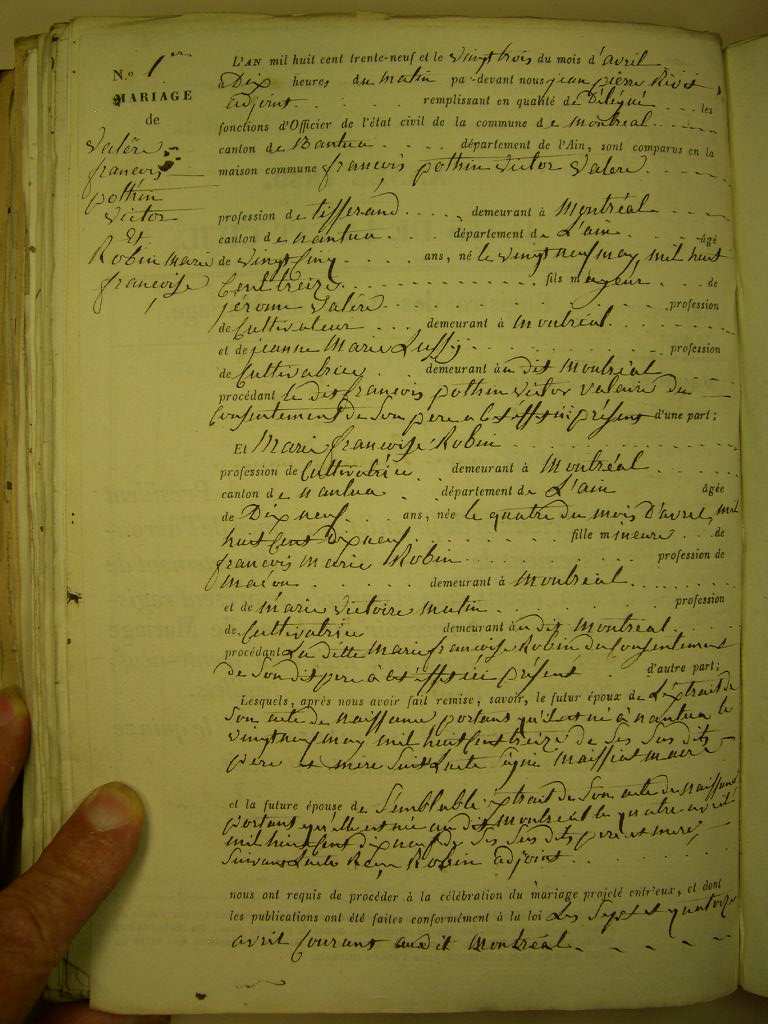 N.o 1er
MARIAGE
de
Valére
françois
pothin
Victor
Et
Robin marie
françoise
L'AN mil huit cent trente-neuf et le vingt trois du mois d'avril
à Dix heures du matin par-devant nous jean pierre
adjoint remplissant en qualité de Délégué les
fonctions d'Officier de l'état civil de la commune de montréal
canton de Nantua département de l'Ain, sont comparus en la
maison commune françois pothin victor Valére
profession de tisserand demeurant à Montréal
canton de nantua département de L'ain âgé
de vingt cinq ans, né le vingt neuf may mil huit
Cent treize fils mageur de
jérome Valére profession
de Cultivateur demeurant à montréal
et de jeanne Marie profession
de Cultivatrice demeurant au dit Montréal
procédant le dit françois pothin victor valere du
Consentement de Son pere a cet effet ici présent d'une part;
Et Marie françoise Robin
profession de Cultivatrice demeurant à Montréal
canton de nantua département de L'ain âgée
de Dix neuf ans, née le quatre du mois D'avril mil
huit cent Dix neuf fille mineure de
françois marie Robin profession de
maçon demeurant à montréal
et de marie victoire matin profession
de Cultivatrice demeurant au dit montréal
procédant La ditte Marie françoise Robin du Consentement
de Son dit pere à cet effet ici présent d'autre part;
Lesquels, après nous avoir fait remise, savoir, le futur époux de L'éxtrait de
Son acte de naissance portant qu'il est né à nantua le
vingt neuf may mil huit Cent treize de Ses Sus dits
père et mere Signé Maissiat maire
et la future épouse de Semblable extrait de Son acte de naissance
portant qu'elle est née au dit montréal le quatre avril
mil huit Cent dix neuf de Ses Sus dits pere et mere,
Suivant Robin adjoint
nous ont requis de procéder à la célébration du mariage projeté entr'eux, et dont
les publications ont été faites conformément à la loi Les Sept et quatorze
avril Courant audit Montréal